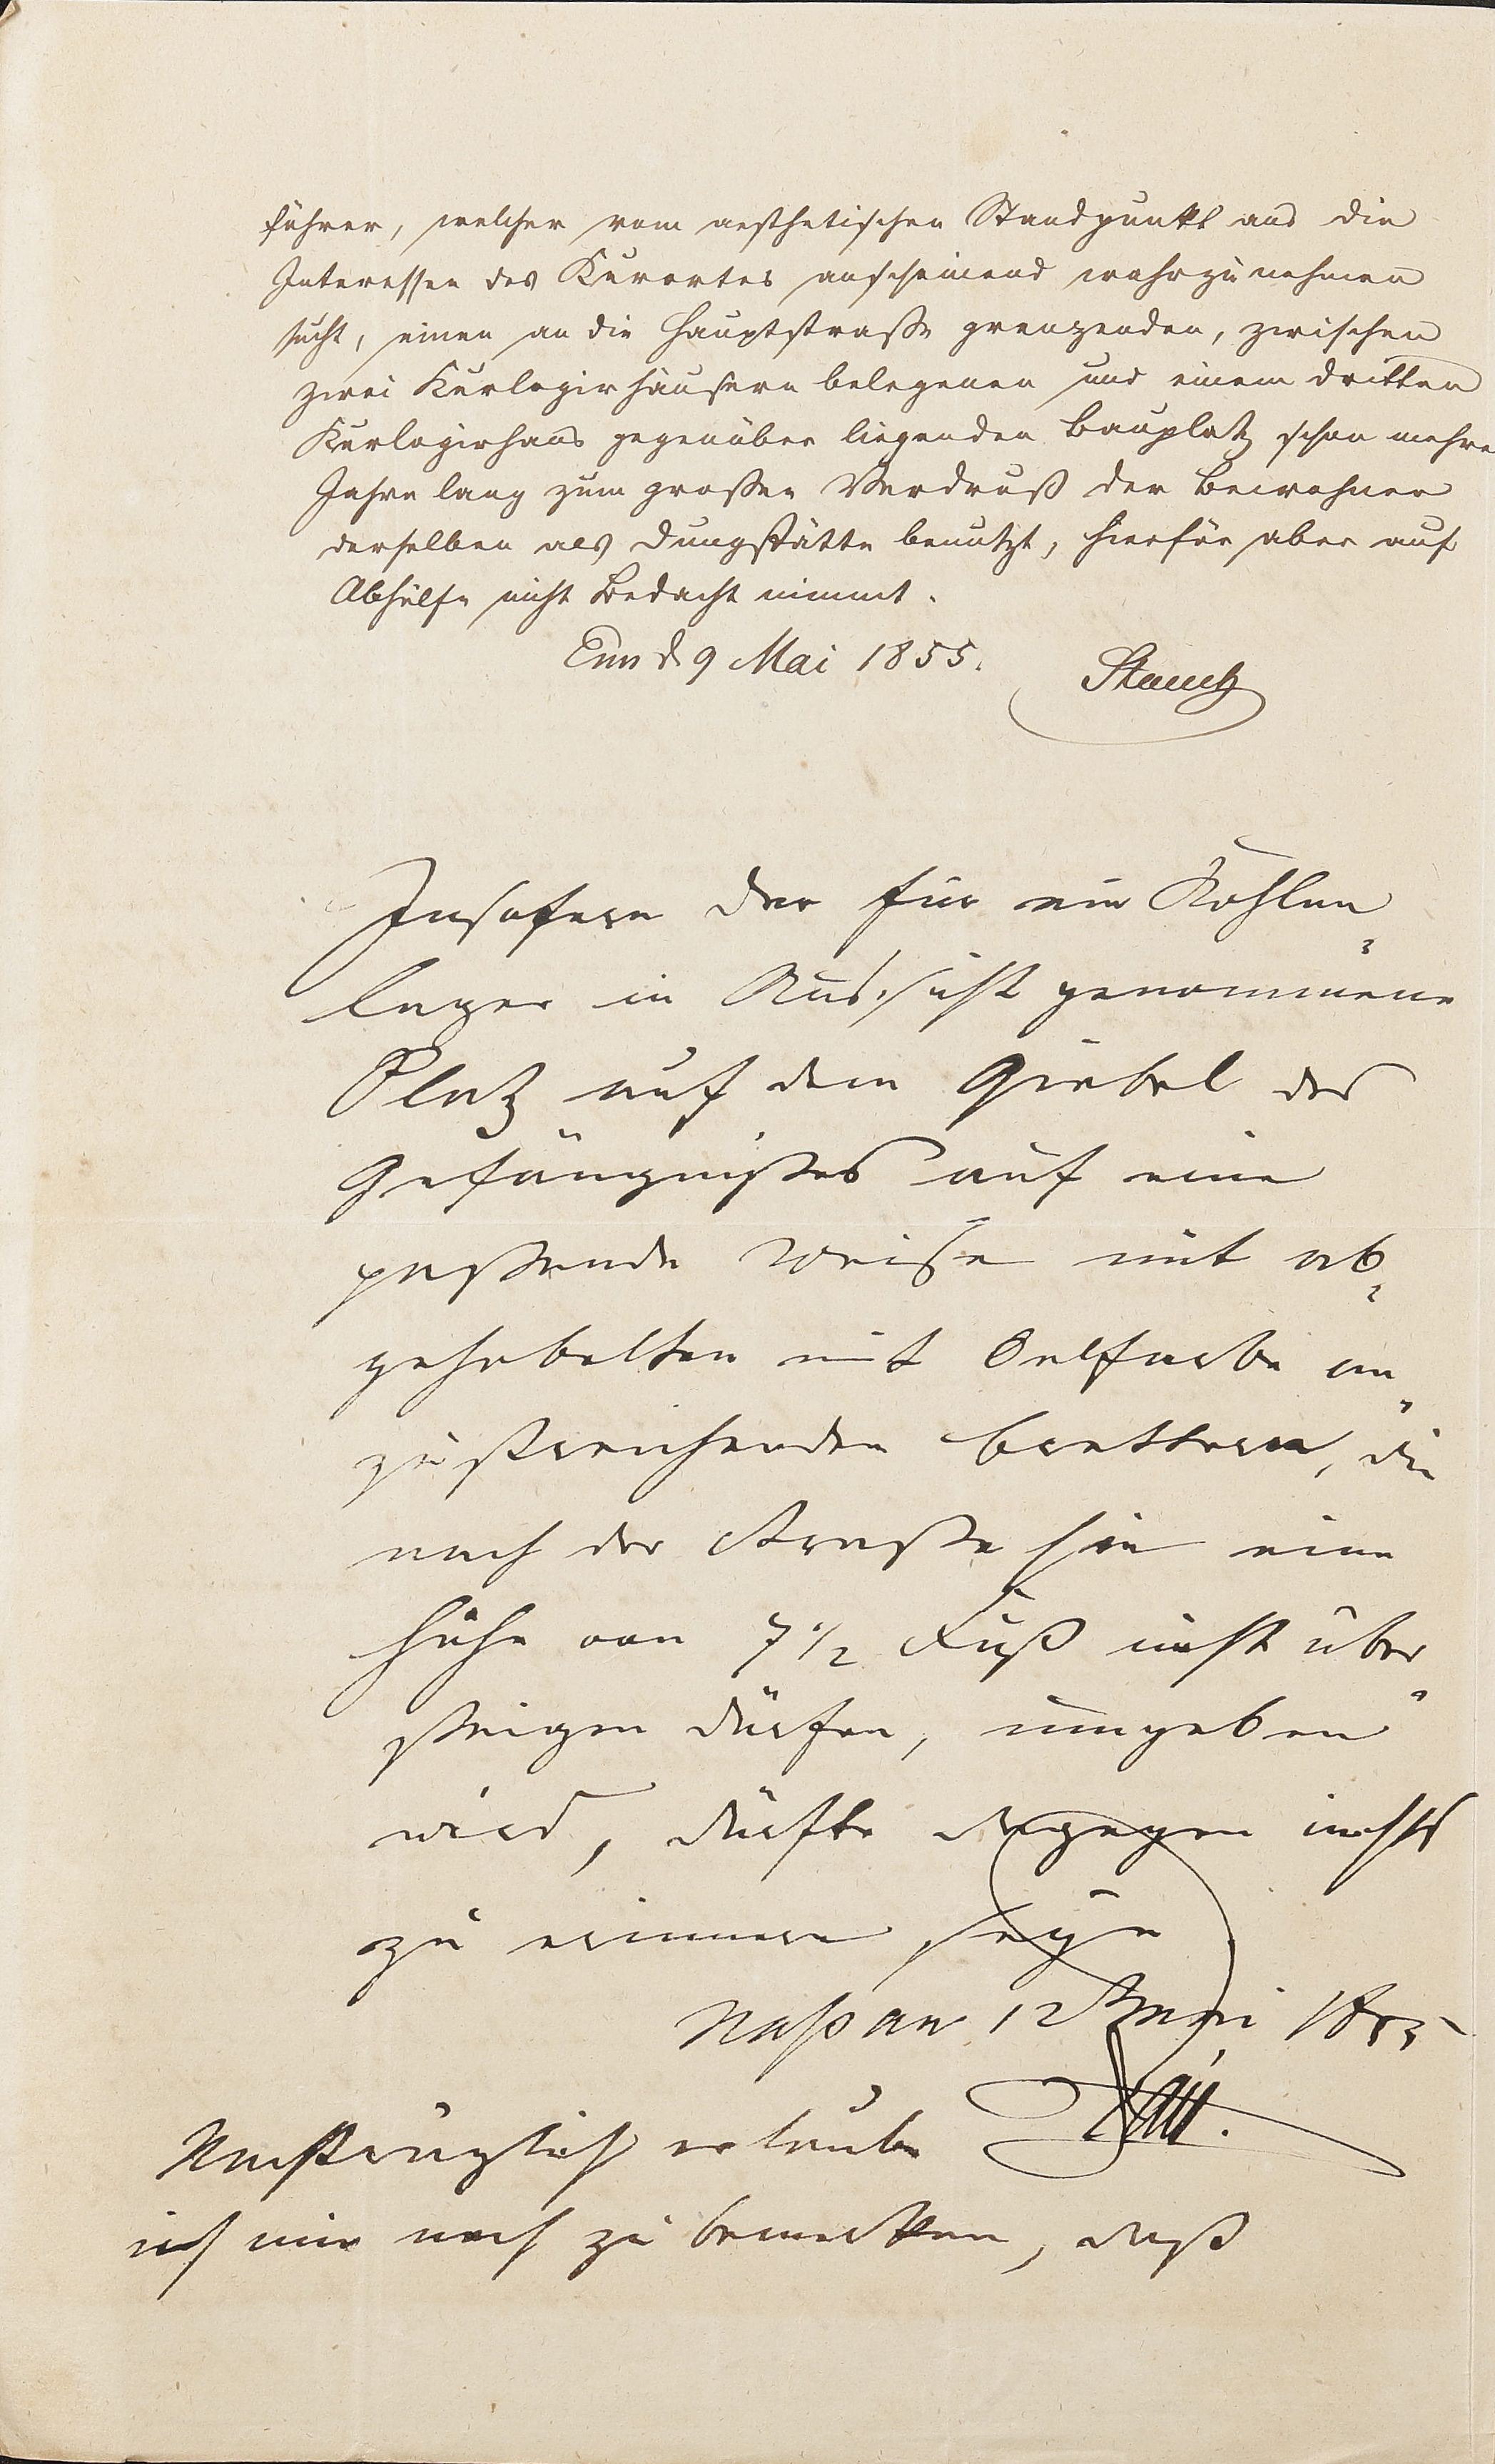 führer, welcher vom aesthetischen Standpunkt aus die
Interessen des Kurortes anscheinend wahrzunehmen
sucht, einen an die Hauptstraße grenzenden, zwischen
zwei Kurlogirhäusern belegenen und einem dritten
Kurlogirhaus gegenüber liegenden Bauplatz schon mehre
Jahre lang zum großen Verdruß der Bewohner
derselben als Dungstätte benutzt, hierfür aber auf
Abhülfe nicht Bedacht nimmt.
Ems d 9 Mai 1855.
Insofern der für ein Kohlen„
lager in Aussicht genommene
Platz auf dem Giebel des
Gefängnißes auf eine
paßende Weise mit ab„
gehobelten mit Oelfarbe an„
zustreichenden Brettern, die
nach der Straße hin eine
Höhe von 7 1/2 Fuß nicht über„
steigen dürfen, umgeben
wird, dürfte dagegen nichts
zu erinnern seyn
Nassau 12 Mai 1855
Nachträglich erlaube
ich mir noch zu bemerken, daß